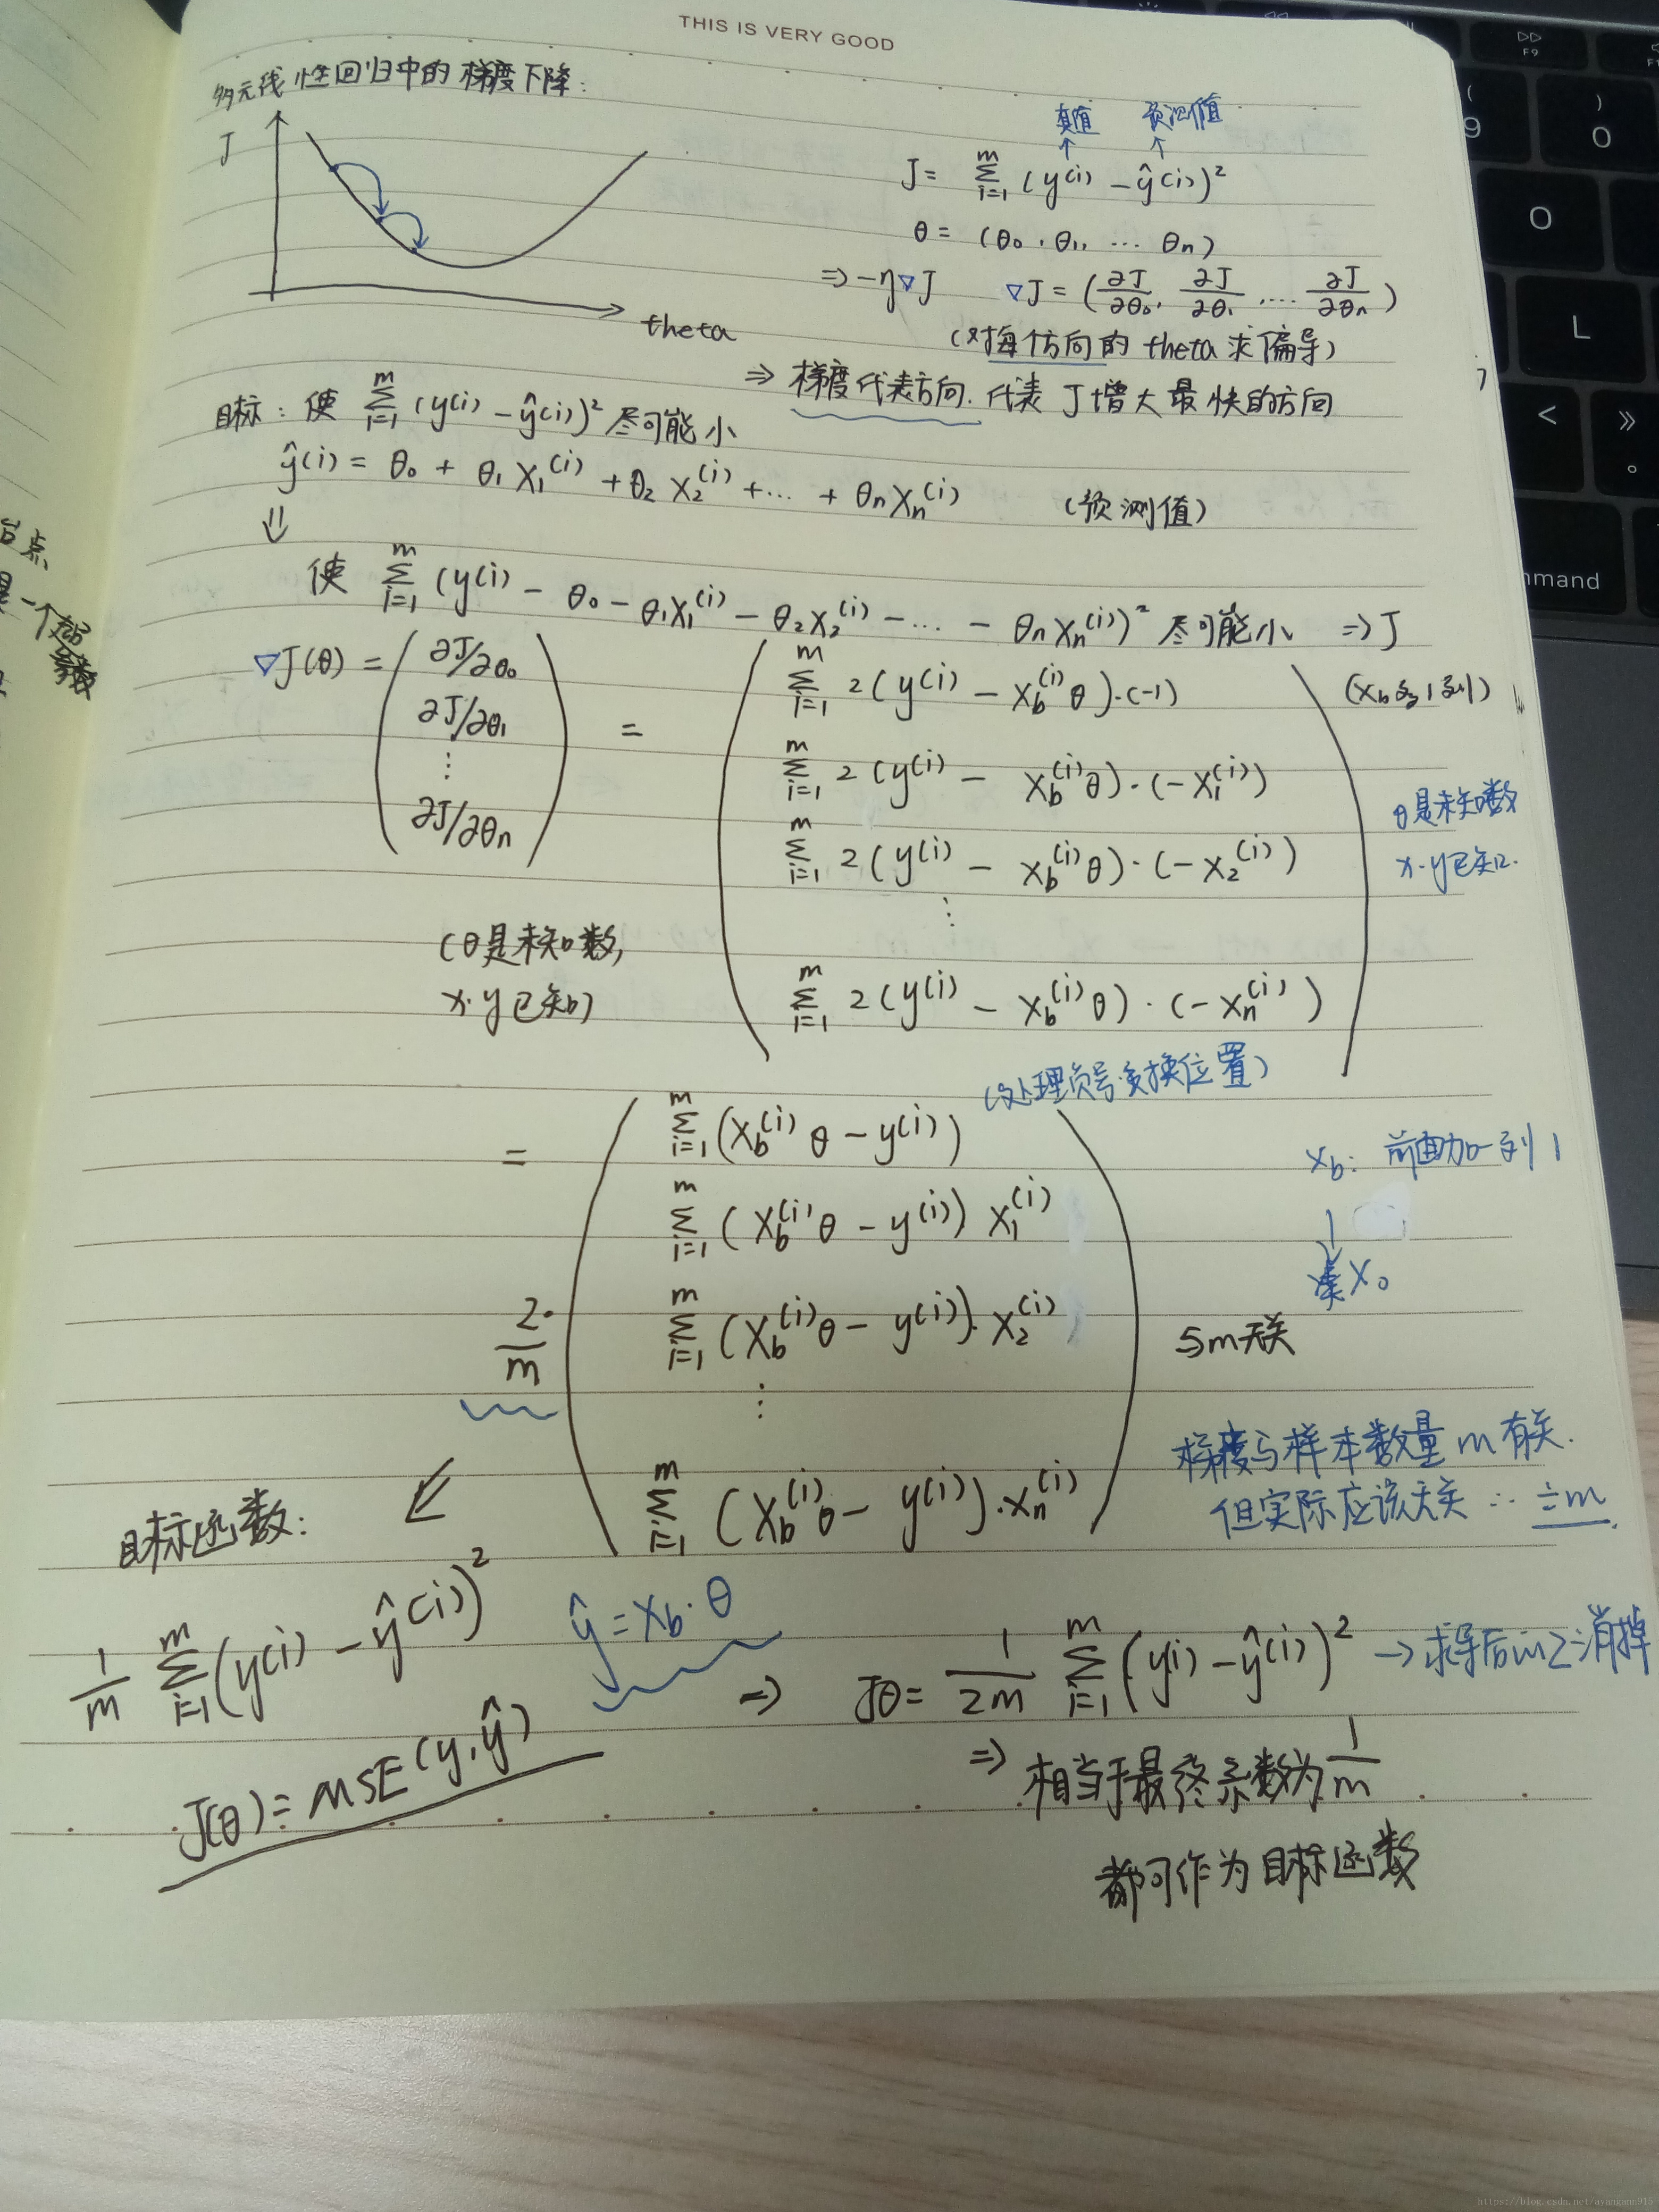 THIS IS VERY GOOD
多元线性回归中的梯度下降:
J
theta
真值 预测值
↑ ↑
J = Σ_{i=1}^{m} (y^(i) - ŷ^(i))²
θ = (θ₀, θ₁, … θn)
⇒ -η▽J ▽J = (∂J/∂θ₀, ∂J/∂θ₁, … ∂J/∂θn)
(对每个方向的 theta 求偏导)
⇒ 梯度代表方向. 代表 J 增大最快的方向
目标: 使 Σ_{i=1}^{m} (y(i) - ŷ(i))² 尽可能小
ŷ(i) = θ₀ + θ₁X₁^(i) + θ₂X₂^(i) + … + θnXn^(i) (预测值)
⇓
使 Σ_{i=1}^{m} (y^(i) - θ₀ - θ₁X₁^(i) - θ₂X₂^(i) - … - θnXn^(i))² 尽可能小 ⇒ J
▽J(θ) = ( ∂J/∂θ₀ ∂J/∂θ₁ ⋮ ∂J/∂θn ) =
Σ_{i=1}^{m} 2(y^(i) - X_b^(i)θ)·(-1) (X_b多1列)
Σ_{i=1}^{m} 2(y^(i) - X_b^(i)θ)·(-X₁^(i))
Σ_{i=1}^{m} 2(y^(i) - X_b^(i)θ)·(-X₂^(i))
⋮
Σ_{i=1}^{m} 2(y^(i) - X_b^(i)θ)·(-Xn^(i))
θ是未知数
x.y已知.
(θ是未知数,
x.y已知)
(处理负号,变换位置)
= 2·/m
Σ_{i=1}^{m} (X_b^(i)θ - y^(i))
Σ_{i=1}^{m} (X_b^(i)θ - y^(i)) X₁^(i)
Σ_{i=1}^{m} (X_b^(i)θ - y^(i))·X₂^(i)
⋮
Σ_{i=1}^{m} (X_b^(i)θ - y^(i))·Xn^(i)
X_b: 前面加一列1
↓
X₀
与m无关
梯度与样本数量m有关.
但实际应该无关 ∴ ÷m
目标函数:
1/m Σ_{i=1}^{m} (y(i) - ŷ(i))²
ŷ = X_b·θ
J(θ) = MSE(y,ŷ)
⇒ Jθ = 1/2m Σ_{i=1}^{m} (y^(i) - ŷ^(i))² → 求导后2消掉
⇒ 相当于最终系数为 1/m
都可作为目标函数
台点
一个超
参数
F9
9
)
0
O
L
<
»
mmand
https://blog.csdn.net/ayangann915